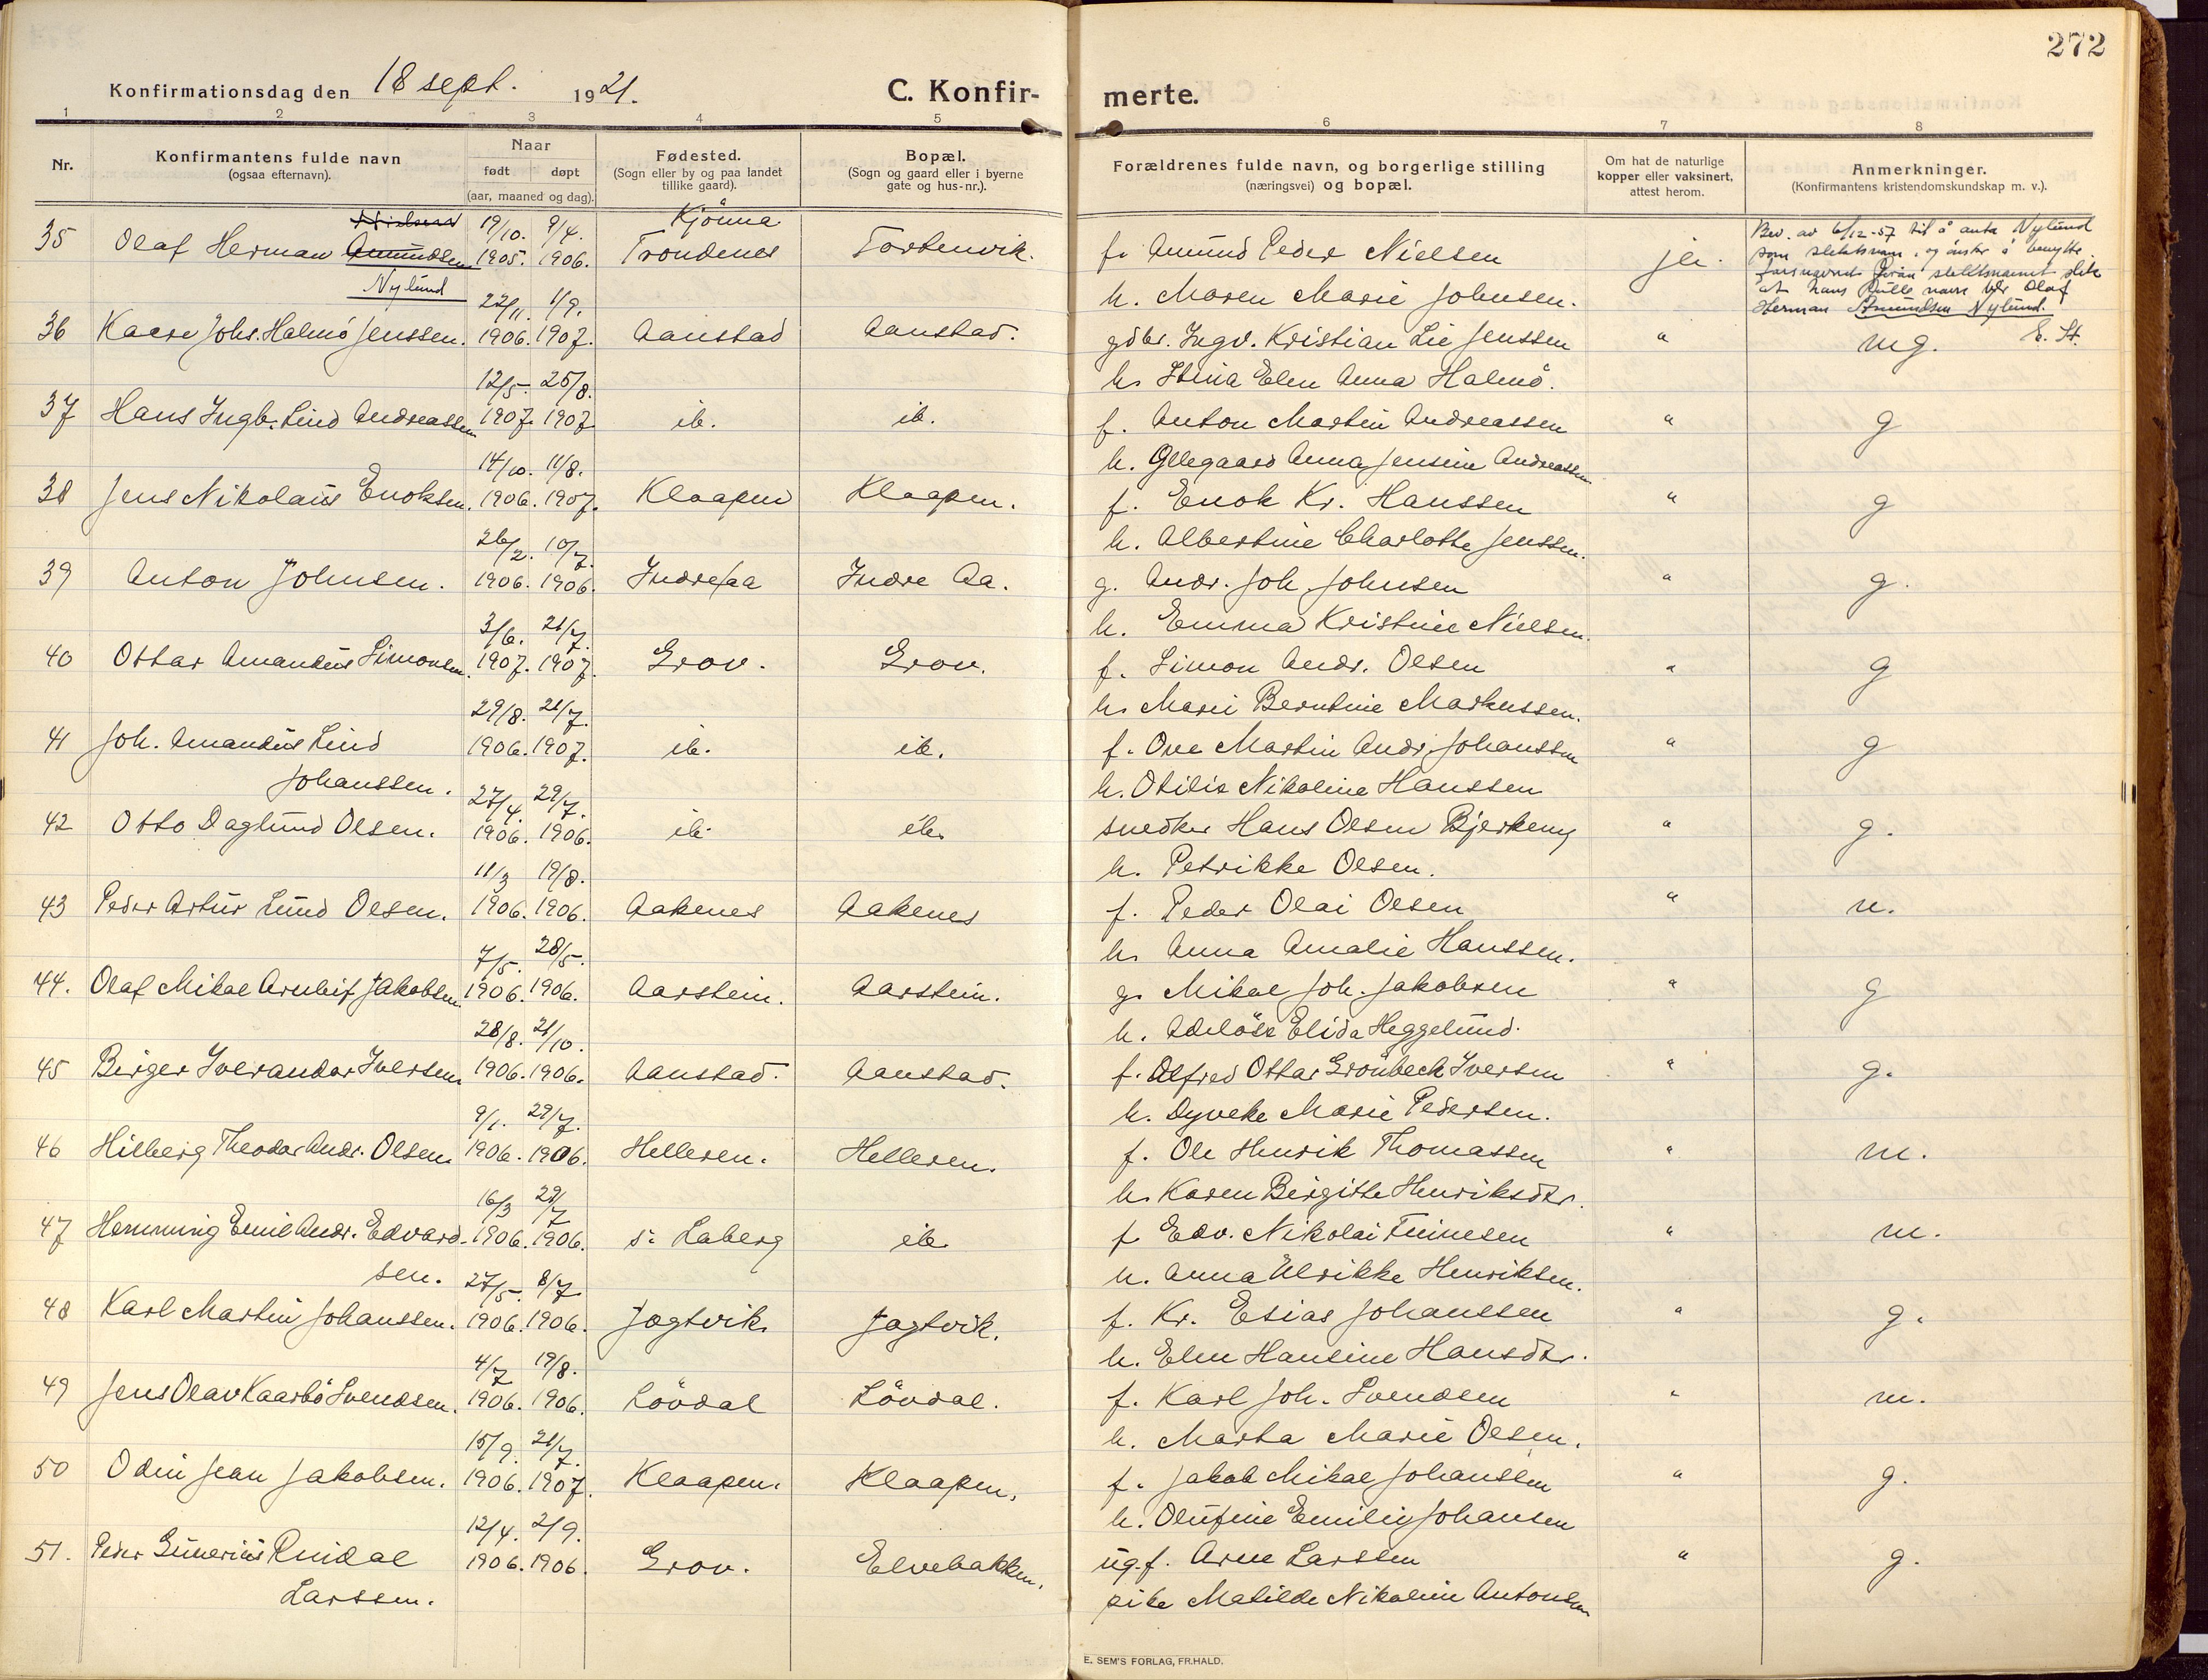 272
Konfirmationsdag den 18 sept. 1921.
C. Konfir-
merte.
1 2 3 4 5 6 7 8
Nr.
Konfirmantens fulde navn
(ogsaa efternavn).
Naar
født døpt
(aar, maaned og dag).
Fødested.
(Sogn eller by og paa landet
tillike gaard).
Bopæl.
(Sogn og gaard eller i byerne
gate og hus-nr.).
Forældrenes fulde navn, og borgerlige stilling
(næringsvei) og bopæl.
Om hat de naturlige
kopper eller vaksinert,
attest herom.
Anmerkninger.
(Konfirmantens kristendomskundskap m. v.).
Nielsen 19/10. 9/4. Kjönna
35 Olaf Herman Amundsen 1905. 1906. Trondenes Tortenvik. f. Amund Peder Nielsen ja.
Nylund h. Maren Marie Johnsen.
Bev. av 6/12-57 til å anta Nylund
som slektsnavn, og ønsker å benytte
foran slektsnavnet slik
at hans fulle navn blir Olaf
Herman Amundsen Nylund.
E. St.
22/11. 1/9.
36 Kaare Johs. Halmö Jenssen. 1906. 1907. Aanstad Aanstad. gdbr. Ingv. Kristian Lie Jenssen " mg.
h. Stina Elen Anna Halmö.
12/5. 25/8.
37 Hans Ingb. Lind Andreassen 1907. 1907 ib. ib. f. Anton Martin Andreassen " g
h. Gllegaard Anna Jensine Andreassen
14/10. 11/8.
38 Jens Nikolaus Enoksen. 1906. 1907. Klaapen Klaapen. f. Enok Kr. Hanssen " g
h. Albertine Charlotte Jenssen.
26/2. 10/7.
39 Anton Johnsen. 1906. 1906. Indre aa Indre Aa. g. Andr. Joh. Johnsen " g.
h. Emma Kristine Nielsen.
3/6. 21/7.
40 Ottar Amandus Simonsen. 1907. 1907. Grov. Grov. f. Simon Andr. Olsen " g
h. Marie Berntine Markussen.
29/8. 21/7.
41 Joh. Amandus Lind 1906. 1907. ib. ib. f. Ove Martin Andr. Johanssen " g
Johanssen. h. Otilie Nikoline Hanssen
27/4. 29/7.
42 Otto Daglund Olsen. 1906. 1906. ib. ib. snedker Hans Olsen Bjerkeng " g.
h. Petrikke Olsen.
11/3 19/8.
43 Peder Artur Lund Olsen. 1906. 1906. Aakenes Aakenes f. Peder Olai Olsen " n.
h. Anna Amalie Hanssen.
7/5. 28/5.
44. Olaf Mikal Arnleif Jakobsen. 1906. 1906. Aarstein. Aarstein. g. Mikal Joh. Jakobsen " g
h. Adelöse Elida Heggelund.
28/8. 21/10.
45 Birger Iverandar Iversen. 1906. 1906. Aanstad. Aanstad. f. Alfred Ottar Grönbech Iversen " g.
h. Dyveke Marie Pedersen.
9/1. 29/7.
46 Hilberg Theodor Andr. Olsen 1906. 1906. Helleren. Helleren. f. Ole Henrik Thomassen " m.
h. Karen Birgitte Henriksdtr.
16/3 29/7
47 Hemming Emil Andr. Edvard- 1906. 1906. s. Laberg ib f. Edv. Nikolai Tinnesen " m.
sen. h. Anna Ulrikke Henriksen.
27/5. 8/7
48 Karl Martin Johanssen. 1906. 1906. Jagtvik Jagtvik. f. Kr. Esias Johanssen " g.
h. Elen Hansine Hansdtr.
4/7 19/8.
49 Jens Olav Kaarbö Svendsen. 1906. 1906. Lövdal Lövdal. f. Karl Joh. Svendsen " m.
h. Marta Marie Olsen.
15/9. 21/7.
50 Odin Jean Jakobsen. 1906. 1907. Klaapen. Klaapen. f. Jakob Mikal Johanssen " g.
h. Olufine Emilie Johansen
12/4. 2/9.
51. Peder Gunerius Rindal 1906. 1906. Grov. Elvebakken. ug.f. Arne Larssen " g.
Larssen. pike Matilde Nikoline Antonsen
E. SEM'S FORLAG, FR.HALD.